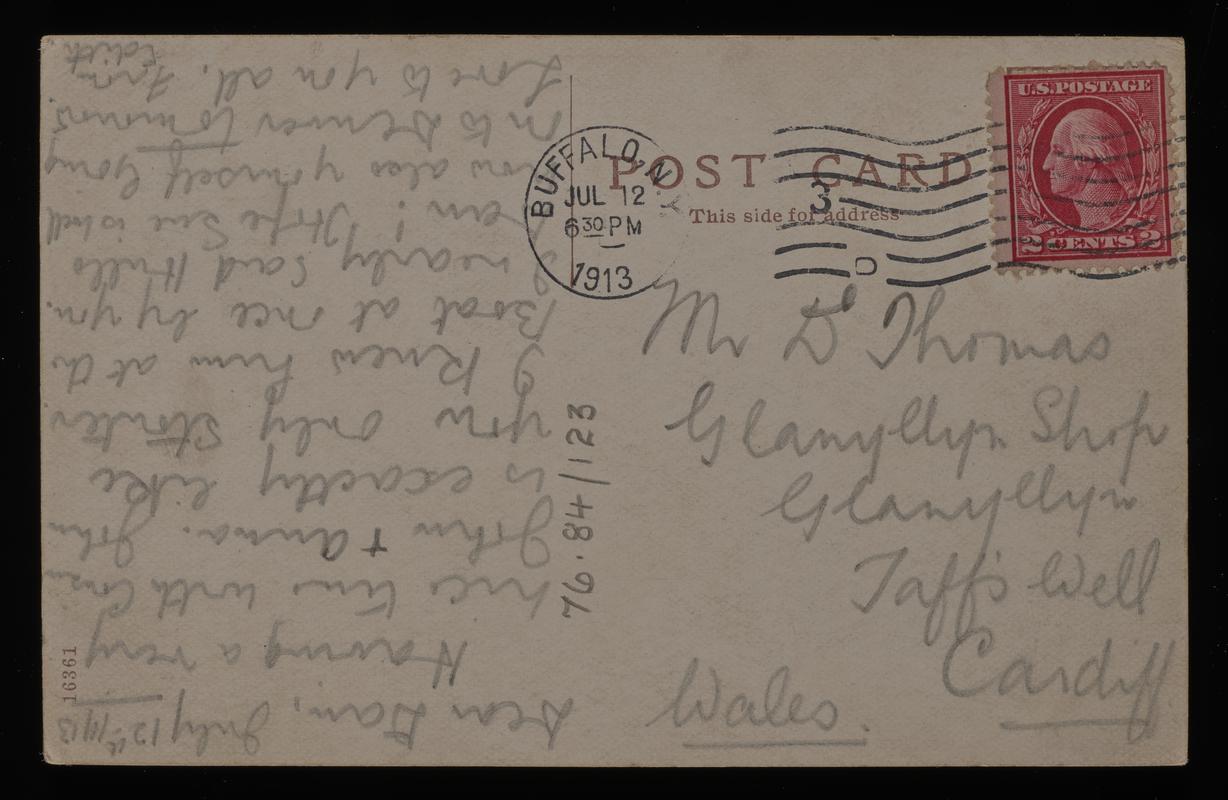 POST CARD
This side for address
U.S. POSTAGE
2 CENTS 2
BUFFALO, N.Y.
JUL 12
6 30 PM
1913
3
D
Mr D Thomas
Glanyllyn Shop
Glanyllyn
Taffs Well
Cardiff
Wales.
76.84/123
16361
July 12th 1913
Dear Dan,
Having a very
nice time with Cousin
John + Anna. John
is exactly like
you only stouter
I knew him at the
Boat at once by you.
I nearly said Hullo
Dan! Hope Sue is well
now also yourself Going
on to Denver tomorrow.
Love to you all. From
Edith